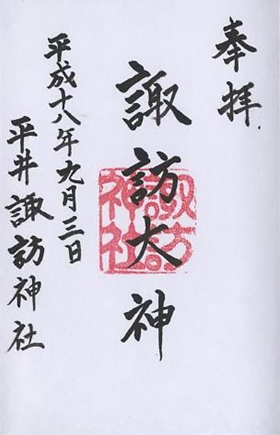 奉拝
諏訪大神
諏訪神社
平成十八年九月三日
平井諏訪神社